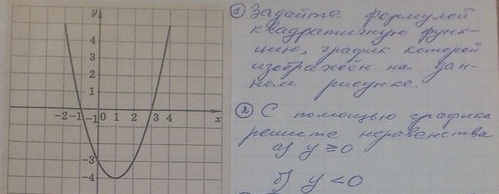 y
4
3
2
1
-2 -1 0 1 2 3 4 x
-1
-3
-4
① Задайте формулой
квадратичную функ-
цию, график которой
изображён на дан-
ном рисунке.
② С помощью графика
решите неравенства
а) y ≥ 0
б) y < 0